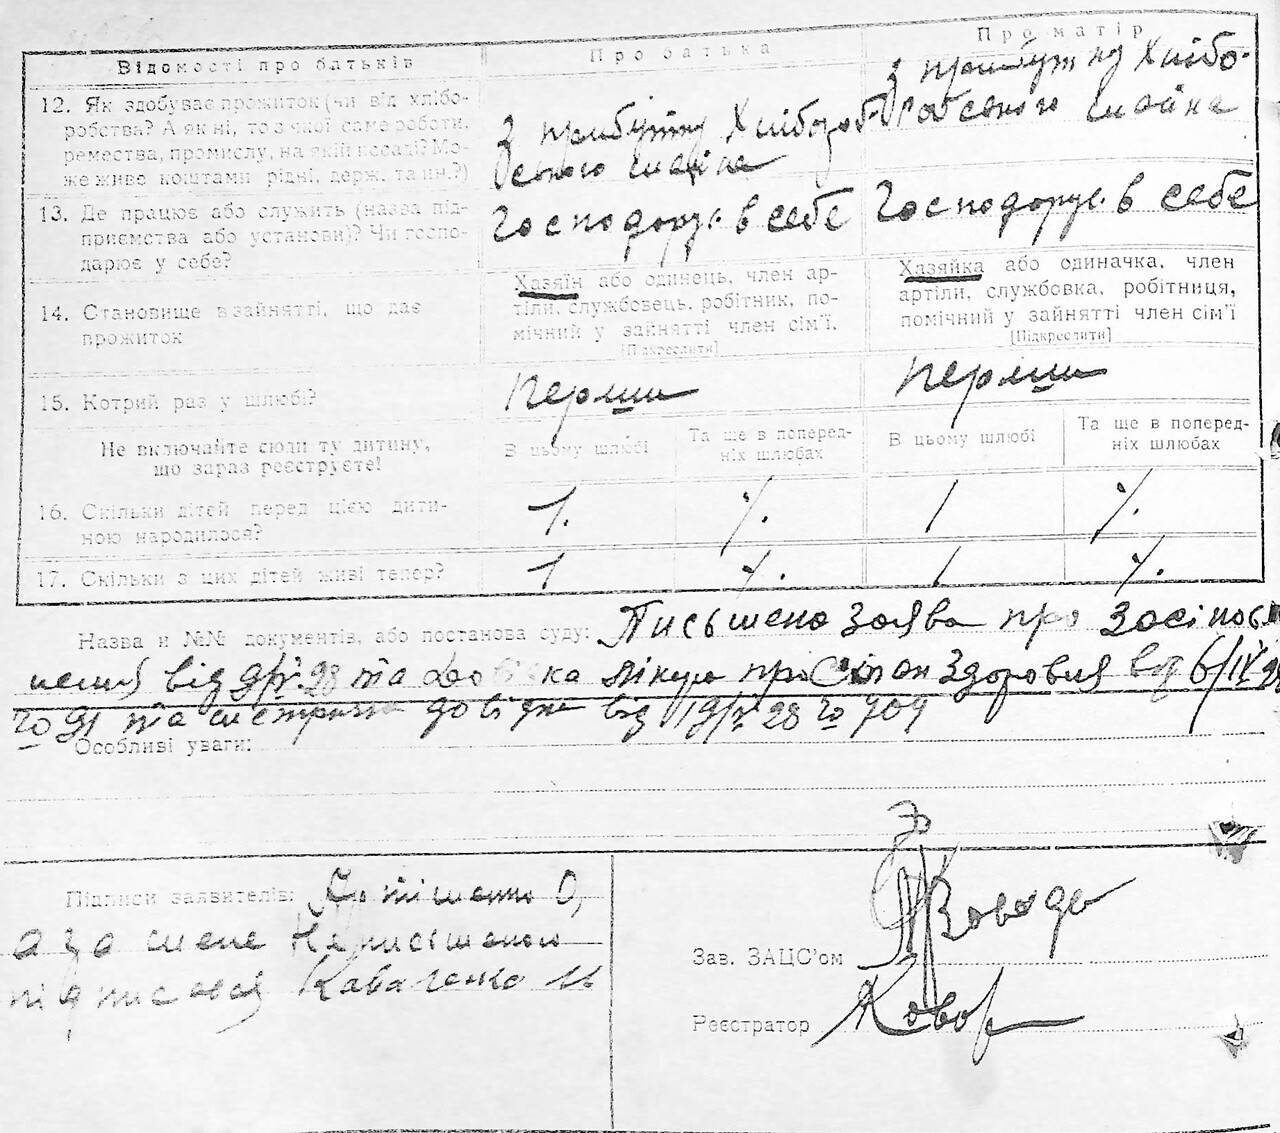 Відомості про батьків
Про батька
Про матір
12. Як здобуває прожиток (чи від хлібо-
робства? А як ні, то з якої саме роботи,
ремества, промислу, на якій посаді? Мо-
же живе коштами рідні, держ. та ин.?)
З прибутку Хлібороб-
ського
З прибутку Хлібо-
робського
13. Де працює або служить (назва під-
приємства або установи)? Чи госпо-
дарює у себе?
Господорує в себе
Господорує в себе
14. Становище в зайнятті, що дає
прожиток
Хазяїн або одинець, член ар-
тілі, службовець, робітник, по-
мічний у зайнятті член сім'ї.
[Підкреслити]
Хазяйка або одиначка, член
артіли, службовка, робітниця,
помічний у зайнятті член сім'ї
[Підкреслити]
15. Котрий раз у шлюбі?
перши
перши
Не включайте сюди ту дитину,
що зараз реєструєте!
В цьому шлюбі
Та ще в поперед-
ніх шлюбах
В цьому шлюбі
Та ще в поперед-
ніх шлюбах
16. Скільки дітей перед цією дити-
ною народилося?
1. ⁒ 1 ⁒
17. Скільки з цих дітей живі тепер?
1 ⁒ 1 ⁒
Назва и №№ документів, або постанова суду: Письмено Заява про
від 9/IV 28 та Довідка лікаря про Стан Здоровля від 6/IV 28
№ 91 та довідка від 19/IV 28 № 704
Особливі уваги:
Підписи заявителів: О,
а за мене Неписьменого
підписався Каваленко
Зав. ЗАЦС'ом
Реєстратор